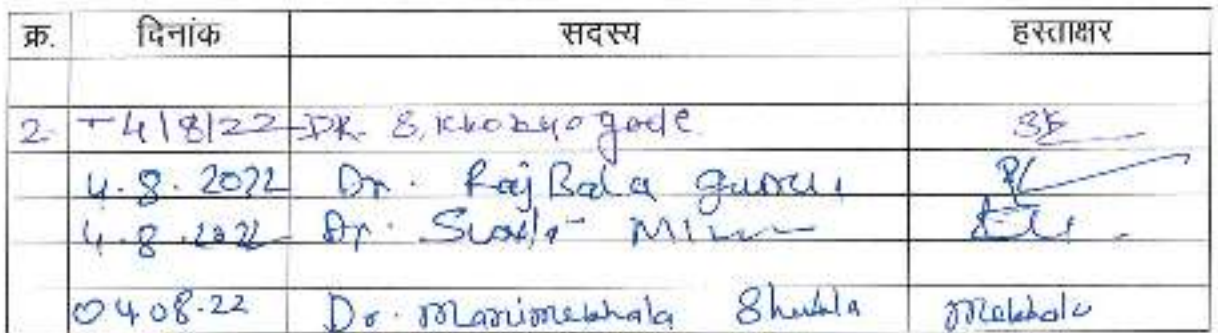 क्र. दिनांक सदस्य हस्ताक्षर
2. 4/8/22 DR. S. Khobragade SK
4.8.2022 Dr. Raj Bala
4.8.2022 Dr.
04.08.22 Dr. Manimekhala Shukla Mekhala